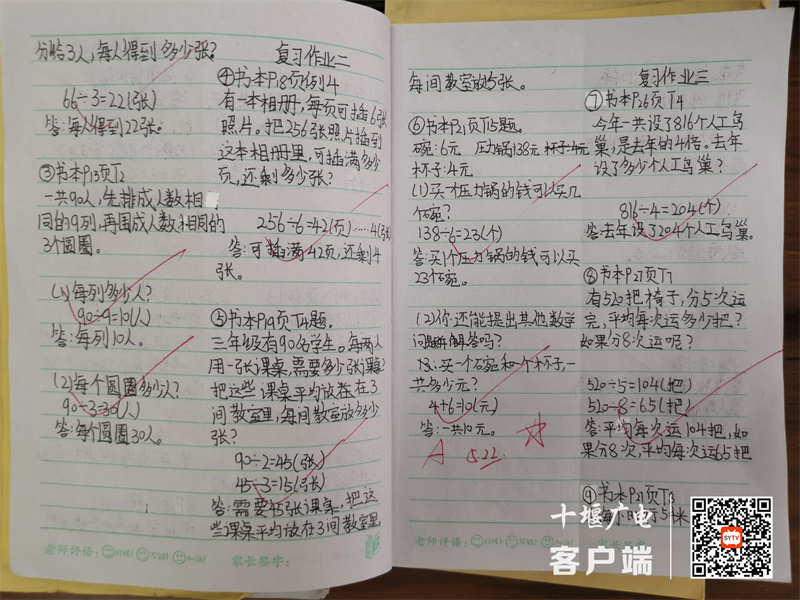 分给3人,每人得到多少张?
66÷3=22(张)
答:每人得到22张。
③书本P13页T2
一共90人,先排成人数相
同的9列,再围成人数相同的
3个圆圈。
(1)每列多少人?
90÷9=10(人)
答:每列10人。
(2)每个圆圈多少人?
90÷3=30(人)
答:每个圆圈30人。
复习作业二
④书本P18页例4
有一本相册,每页可插6张
照片。把256张照片插到
这本相册里,可插满多少
页,还剩多少张?
256÷6=42(页)……4(张)
答:可插满42页,还剩4
张。
⑤书本P19页T4题。
三年级有90名学生。每两人
用一张课桌,需要多少张课桌?
把这些课桌平均放在3
间教室里,每间教室放多少
张?
90÷2=45(张)
45÷3=15(张)
答:需要45张课桌,把这
些课桌平均放在3间教室里
老师评语:
家长签字:
每间教室放15张。
⑥书本P21页T15题。
碗:6元 压力锅138元 杯子:4元
杯子:4元
(1)买一个压力锅的钱可以买几
个碗?
138÷6=23(个)
答:买1个压力锅的钱可以买
23个碗。
(2)你还能提出其他数学
问题并解答吗?
买一个碗和一个杯子,一
共多少元?
4+6=10(元)
答:一共10元。
A 5.22.
复习作业三
⑦书本P26页T4
今年一共设了816个人工鸟
巢,是去年的4倍。去年
设了多少个人工鸟巢?
816÷4=204(个)
答:去年设了204个人工鸟巢。
⑧书本P27页T7
有520把椅子,分5次运
完,平均每次运多少把?
如果分8次运呢?
520÷5=104(把)
520÷8=65(把)
答:平均每次运104把,如
果分8次,平均每次运65把
⑨书本P27页T8
老师评语:
十堰广电
客户端
SYTV